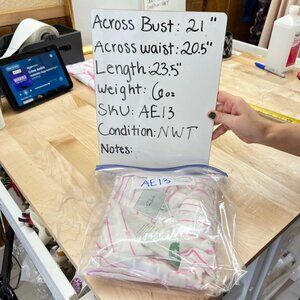 Across Bust: 21"
Across waist: 20.5"
Length: 23.5"
Weight: 6oz
SKU: AE13
Condition: NWT
Notes:
AE13